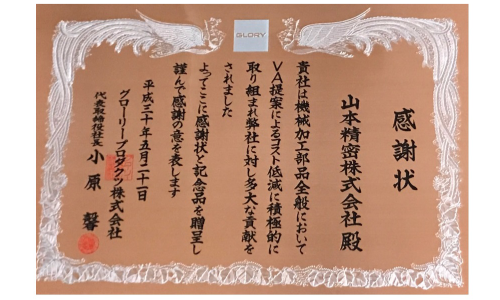 GLORY
感謝状
山本精密株式会社 殿
貴社は機械加工部品全般において
VA提案によるコスト低減に積極的に
取り組まれ弊社に対し多大な貢献を
されました
よってここに感謝状と記念品を贈呈し
謹んで感謝の意を表します
平成三十年五月二十一日
グローリープロダクツ株式会社
代表取締役社長 小原 馨